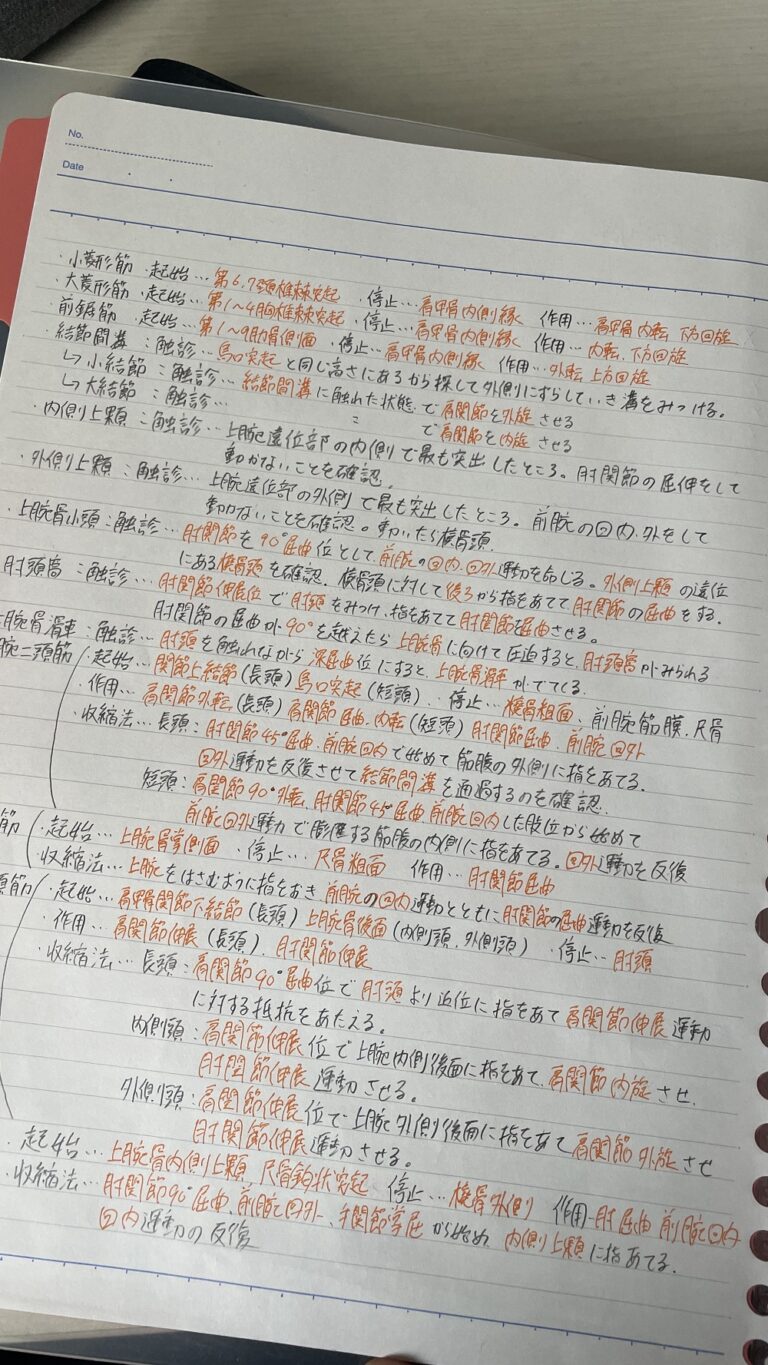 No.
Date
・小菱形筋 ・起始…第6.7頚椎棘突起 ・停止…肩甲骨内側縁 作用…肩甲骨内転 下方回旋
大菱形筋 ・起始…第1〜4胸椎棘突起 ・停止…肩甲骨内側縁 作用…内転、下方回旋
前鋸筋 ・起始…第1〜9肋骨側面 ・停止…肩甲骨内側縁 作用…外転 上方回旋
・結節間溝：触診…烏口突起と同じ高さにあるから探して外側にずらしていき溝をみつける。
↳小結節：触診…結節間溝に触れた状態で肩関節を外旋させる
↳大結節：触診… 〃 で肩関節を内旋させる
・内側上顆：触診…上腕遠位部の内側で最も突出したところ。肘関節の屈伸をして
動かないことを確認。
・外側上顆：触診…上腕遠位部の外側で最も突出したところ。前腕の回内、外をして
動かないことを確認。動いたら橈骨頭。
・上腕骨小頭：触診…肘関節を90°屈曲位として、前腕の回内、回外運動を命じる。外側上顆の遠位
にある橈骨頭を確認。橈骨頭に対して後ろから指をあてて、肘関節の屈曲をする。
肘頭窩：触診…肘関節伸展位で肘頭をみつけ、指をあてて肘関節を屈曲させる。
肘関節の屈曲が90°を越えたら上腕骨に向けて圧迫すると、肘頭窩がみられる
腕骨滑車：触診…肘頭を触れながら深屈曲位にすると、上腕骨滑車がでてくる。
腕二頭筋 ・起始…関節上結節(長頭)烏口突起(短頭)、停止…橈骨粗面、前腕筋膜、尺骨
・作用…肩関節外転(長頭)肩関節屈曲、内転(短頭)肘関節屈曲、前腕回外
・収縮法…長頭：肘関節45°屈曲、前腕回内で始めて筋腹の外側に指をあてる。
回外運動を反復させて結節間溝を通過するのを確認。
短頭：肩関節90°外転、肘関節45°屈曲前腕回内した肢位から始めて
前腕回外運動で膨隆する筋腹の内側に指をあてる。回外運動を反復
筋 ・起始…上腕骨掌側面 ・停止…尺骨粗面 作用…肘関節屈曲
収縮法…上腕をはさむように指をおき、前腕の回内運動とともに肘関節の屈曲運動を反復
頭筋 ・起始…肩甲骨関節下結節(長頭)上腕骨後面(内側頭、外側頭) ・停止…肘頭
・作用…肩関節伸展(長頭)、肘関節伸展
・収縮法…長頭：肩関節90°屈曲位で肘頭より近位に指をあて肩関節伸展運動
に対する抵抗をあたえる。
内側頭：肩関節伸展位で上腕内側後面に指をあて、肩関節内旋させ、
肘関節伸展運動させる。
外側頭：肩関節伸展位で上腕外側後面に指をあて肩関節外旋させ
肘関節伸展運動させる。
・起始…上腕骨内側上顆 尺骨鈎状突起 停止…橈骨外側 作用-肘屈曲 前腕回内
・収縮法…肘関節90°屈曲、前腕回外、手関節掌屈から始め 内側上顆に指あてる。
回内運動の反復